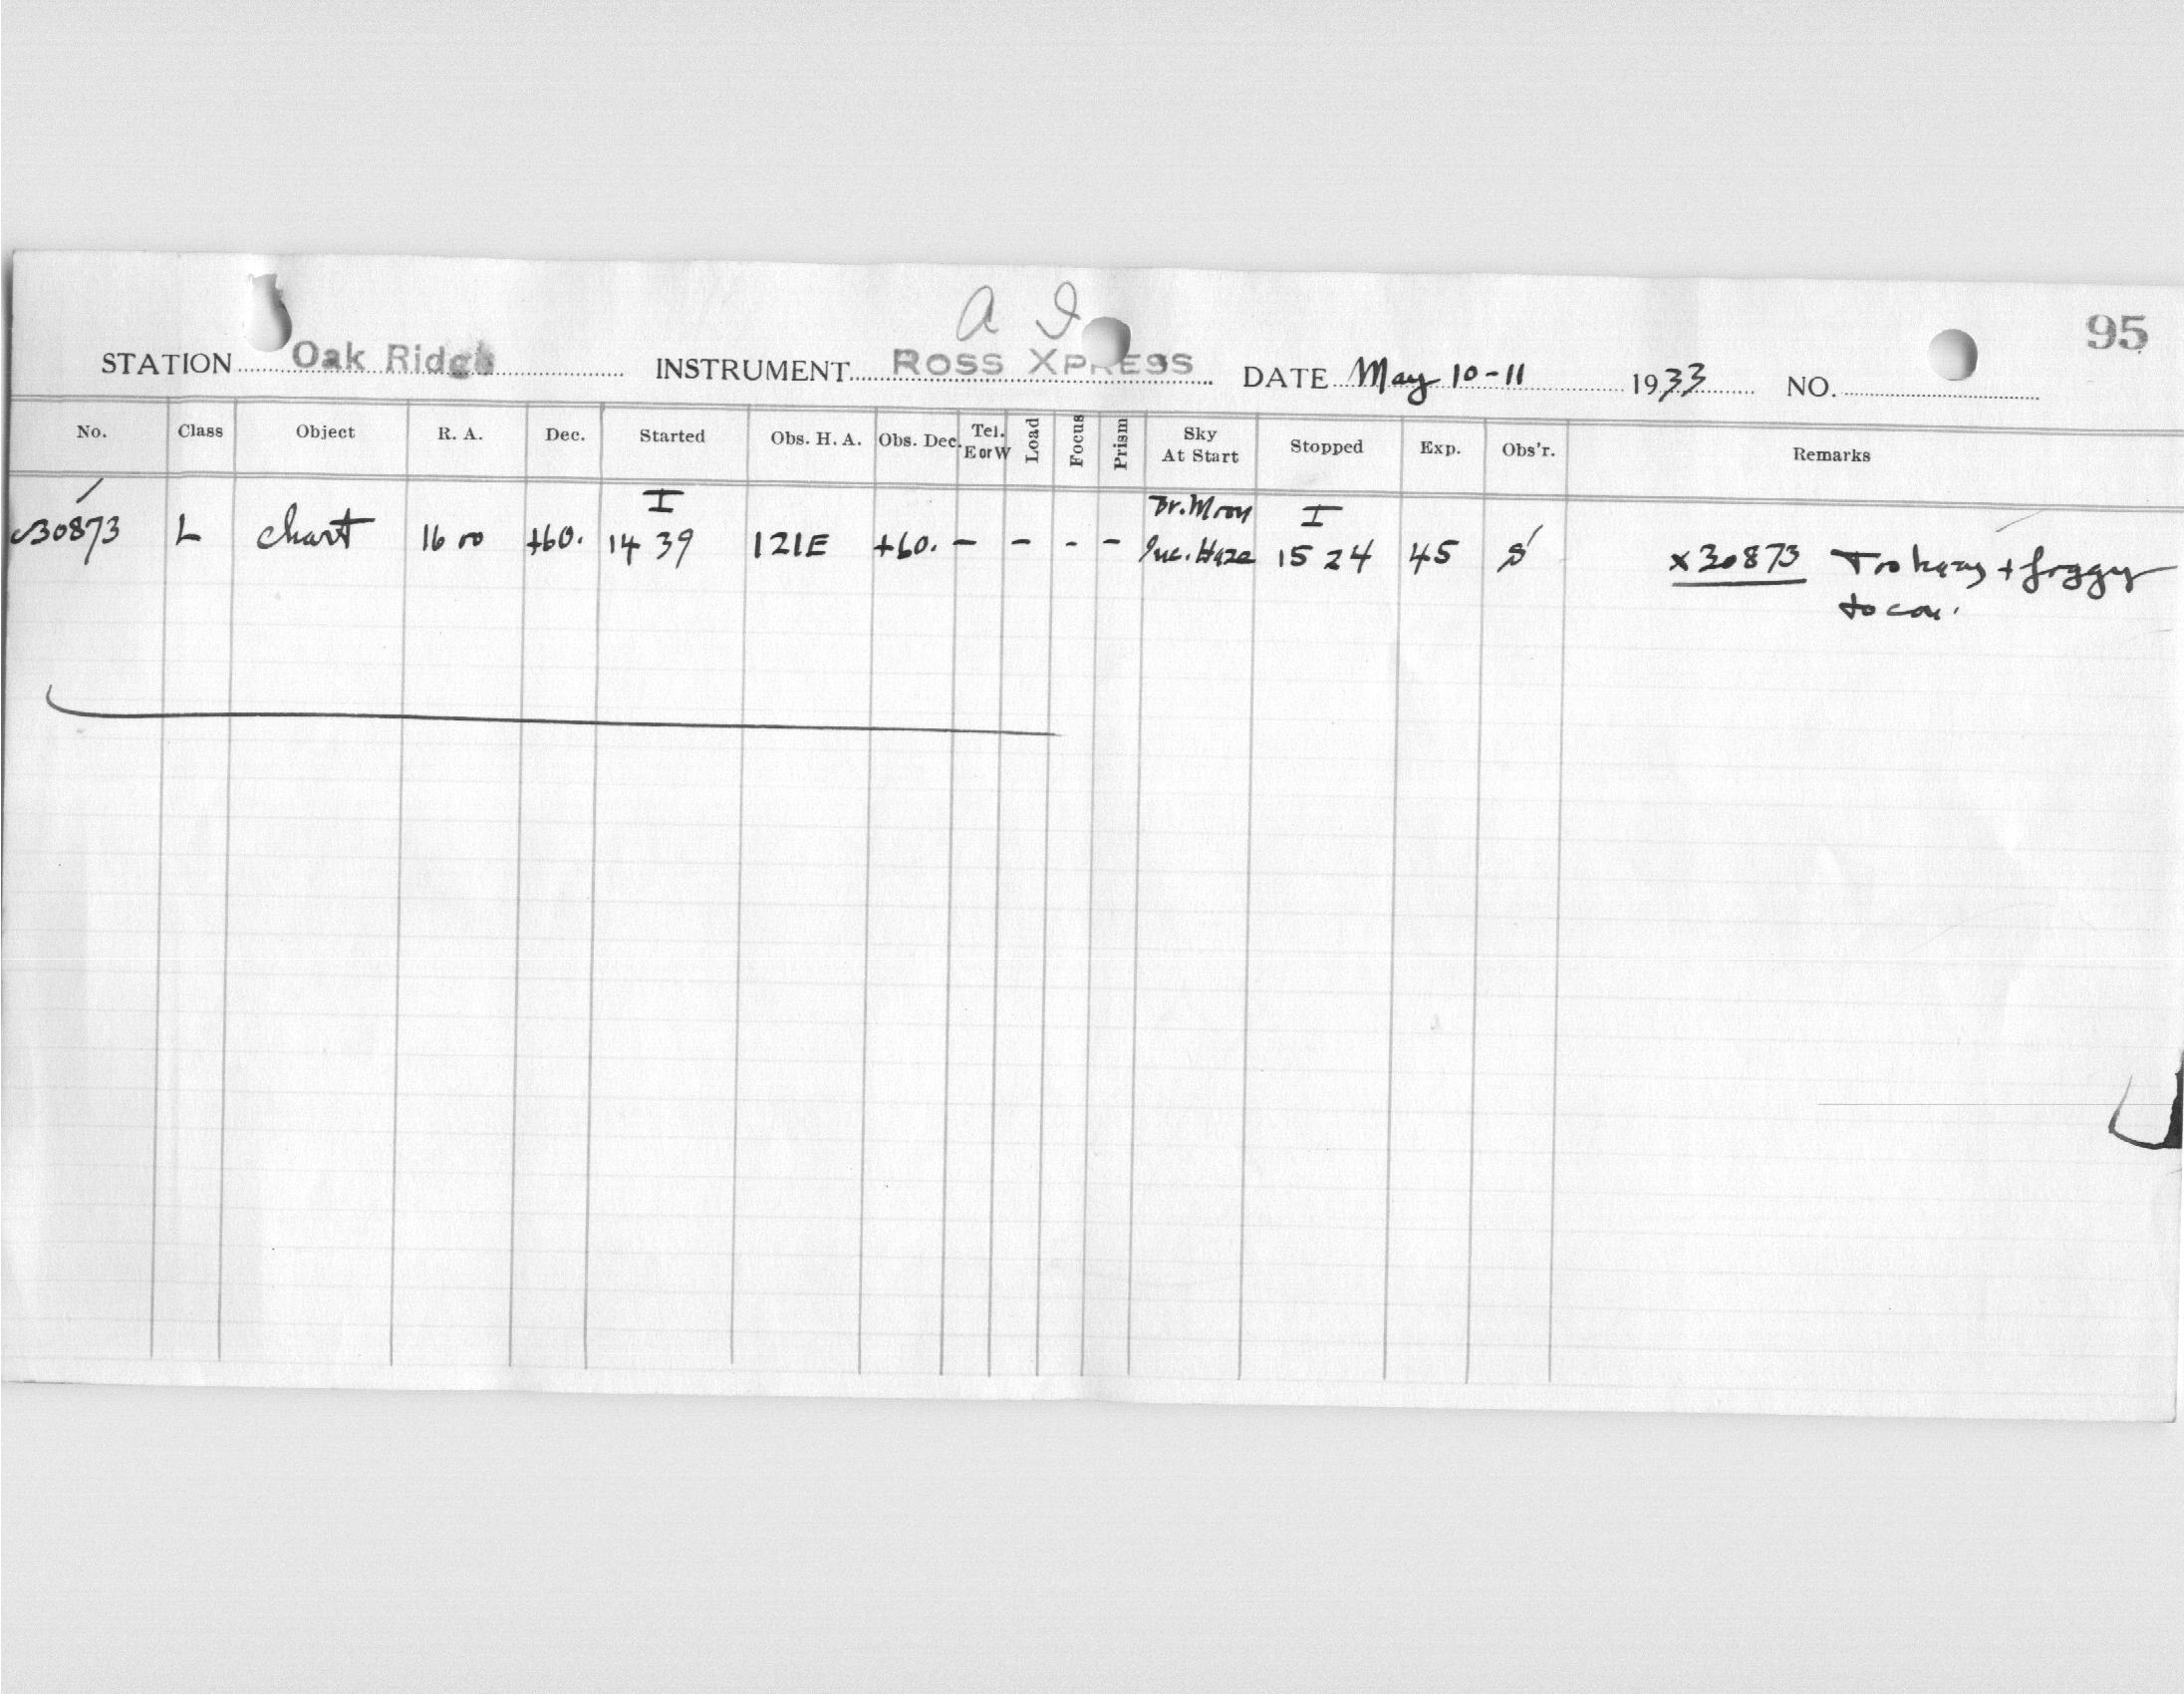 a I
95
STATION Oak Ridge INSTRUMENT ROSS XPRESS DATE May 10-11 1933 NO.
No. Class Object R. A. Dec. Started Obs. H. A. Obs. Dec. Tel. E or W Load Focus Prism Sky At Start Stopped Exp. Obs'r. Remarks
I Br. Moon I
30873 L Chart 16 00 +60. 14 39 121E +60. - - - - Inc. Haze 15 24 45 S x30873 Too hazy + foggy
to con.